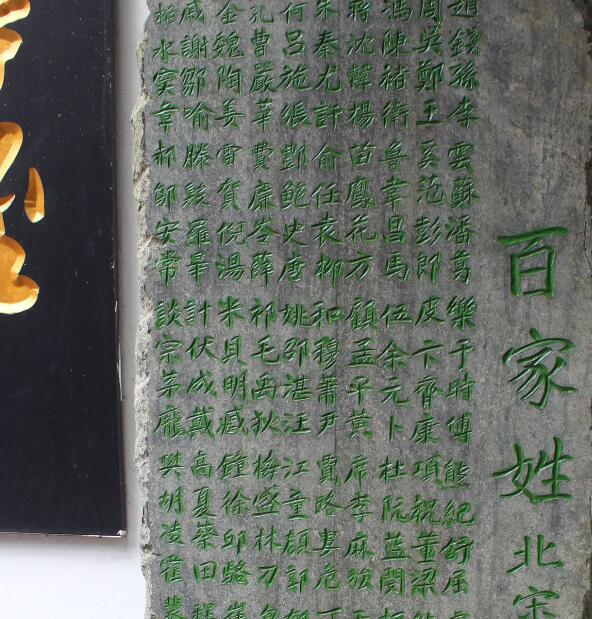 百家姓 北宋
趙錢孫李雲蘇潘葛樂于時傅熊紀舒屈
周吳鄭王奚范彭郎皮卞齊康項祝董梁
馮陳褚衛魯韋昌馬伍余元卜杜阮藍閔
蔣沈韓楊苗鳳花方顧孟平黃席季麻強
朱秦尤許俞任袁柳和穆蕭尹賈路婁危
何呂施張酆鮑史唐姚邵湛汪江童顏郭
孔曹嚴華費廉岑薛祁毛禹狄梅盛林刁
金魏陶姜雷賀倪湯米貝明臧鍾徐邱駱
戚謝鄒喻滕殷羅畢計伏成戴高夏蔡田
柏水竇章郝鄔安常談宗茅龐樊胡凌霍